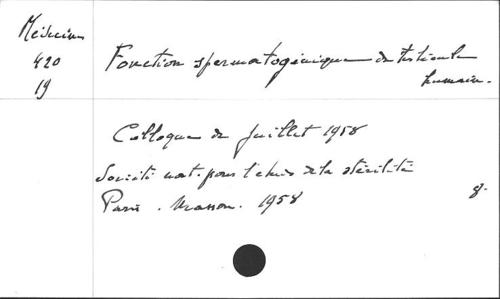 Médecine
420
19
Fonction spermatogénique du testicule
humain.
Colloque de Juillet 1958
Société nat. pour l'étude de la stérilité
Paris. Masson. 1958
8°